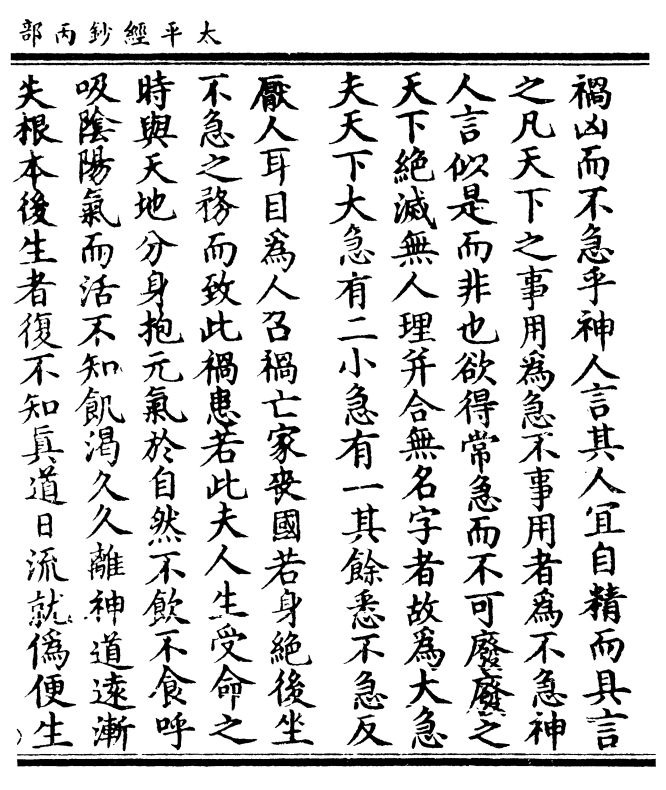 太平經鈔丙部
禍凶而不急乎神人言其人冝自精而具言
之凡天下之事用為急不事用者為不急神
人言似是而非也欲得常急而不可廢廢之
天下絕滅無人理并合無名字者故為大急
夫天下大急有二小急有一其餘悉不急反
厭人耳目為人召禍亡家喪國若身絕後坐
不急之務而致此禍患若此夫人生受命之
時與天地分身抱元氣於自然不飲不食呼
吸陰陽氣而活不知飢渴久久離神道遠漸
失根本後生者復不知真道日流就偽便生